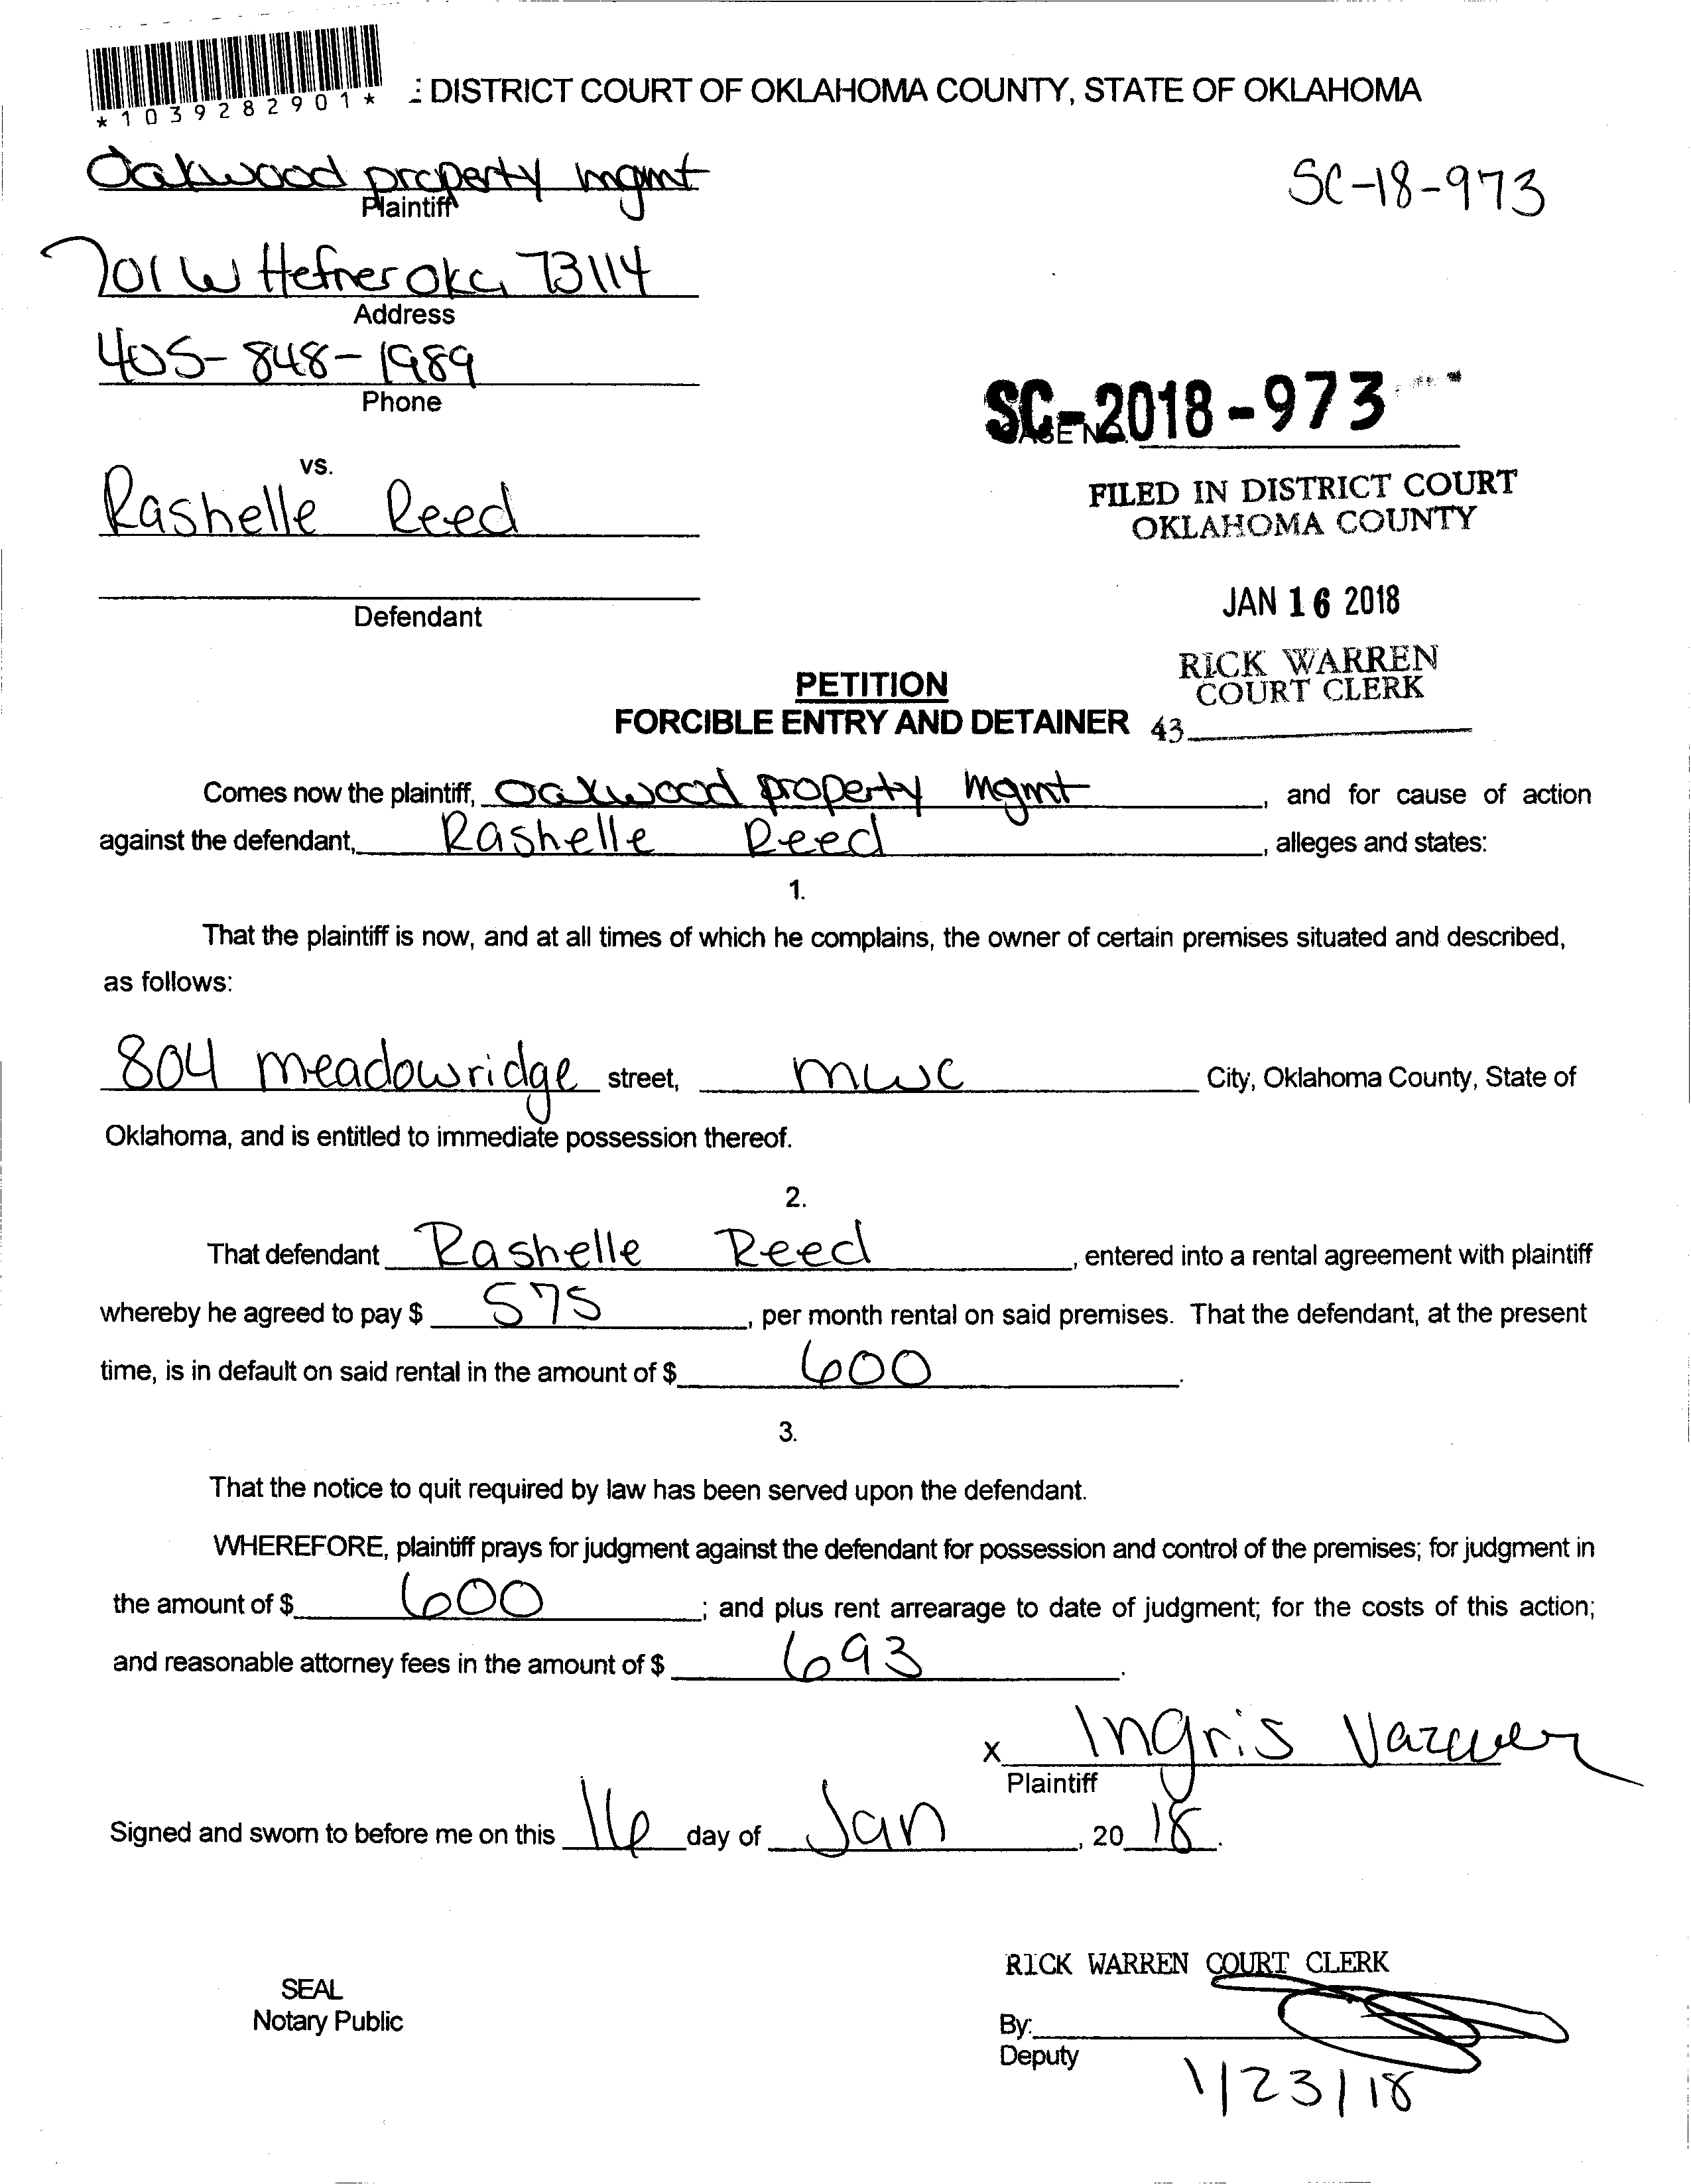 *1039282901*
: DISTRICT COURT OF OKLAHOMA COUNTY, STATE OF OKLAHOMA
Oakwood property mgmt
Plaintiff
SC-18-973
701 W Hefner OKC, 73114
Address
405-848-1989
Phone
SC-2018-973
vs.
Rashelle Reed
FILED IN DISTRICT COURT
OKLAHOMA COUNTY
Defendant
JAN 16 2018
RICK WARREN
COURT CLERK
43
PETITION
FORCIBLE ENTRY AND DETAINER
Comes now the plaintiff, Oakwood property mgmt, and for cause of action
against the defendant, Rashelle Reed, alleges and states:
1.
That the plaintiff is now, and at all times of which he complains, the owner of certain premises situated and described,
as follows:
804 meadowridge street, mwc City, Oklahoma County, State of
Oklahoma, and is entitled to immediate possession thereof.
2.
That defendant Rashelle Reed, entered into a rental agreement with plaintiff
whereby he agreed to pay $ 575, per month rental on said premises. That the defendant, at the present
time, is in default on said rental in the amount of $ 600.
3.
That the notice to quit required by law has been served upon the defendant.
WHEREFORE, plaintiff prays for judgment against the defendant for possession and control of the premises; for judgment in
the amount of $ 600; and plus rent arrearage to date of judgment; for the costs of this action;
and reasonable attorney fees in the amount of $ 693.
x Ingris Vazquez
Plaintiff
Signed and sworn to before me on this 16 day of Jan, 20 18.
RICK WARREN COURT CLERK
SEAL
Notary Public
By:
Deputy
1/23/18